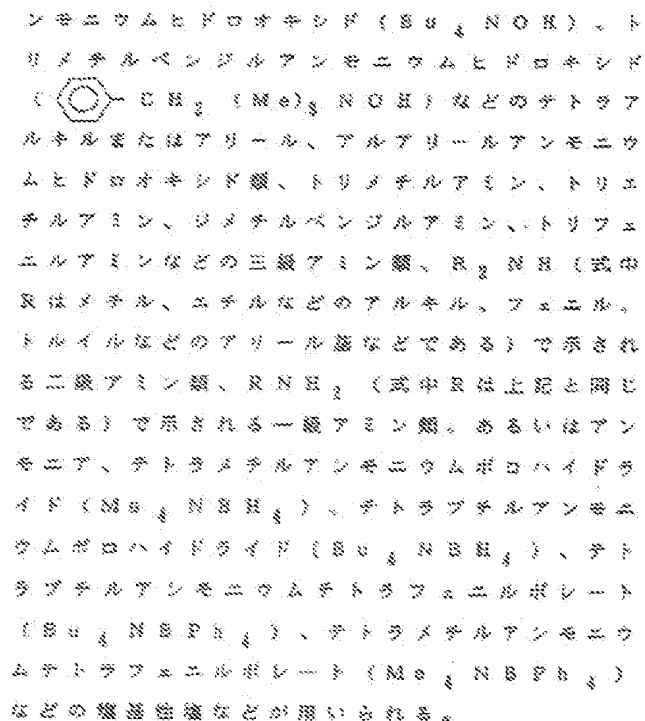 ンモニウムヒドロオキシド(Bu₄NOH)、ト
リメチルベンジルアンモニウムヒドロキシド
(CH₂(Me)₃NOH)などのテトラア
ルキルまたはアリール、アルアリールアンモニウ
ムヒドロオキシド類、トリメチルアミン、トリエ
チルアミン、ジメチルベンジルアミン、トリフェ
ニルアミンなどの三級アミン類、R₂NH(式中
Rはメチル、エチルなどのアルキル、フェニル、
トルイルなどのアリール基などである)で示され
る二級アミン類、RNH₂(式中Rは上記と同じ
である)で示される一級アミン類、あるいはアン
モニア、テトラメチルアンモニウムボロハイドラ
イド(Me₄NBH₄)、テトラブチルアンモニ
ウムボロハイドライド(Bu₄NBH₄)、テト
ラブチルアンモニウムテトラフェニルボレート
(Bu₄NBPh₄)、テトラメチルアンモニウ
ムテトラフェニルボレート(Me₄NBPh₄)
などの塩基性塩などが用いられる。